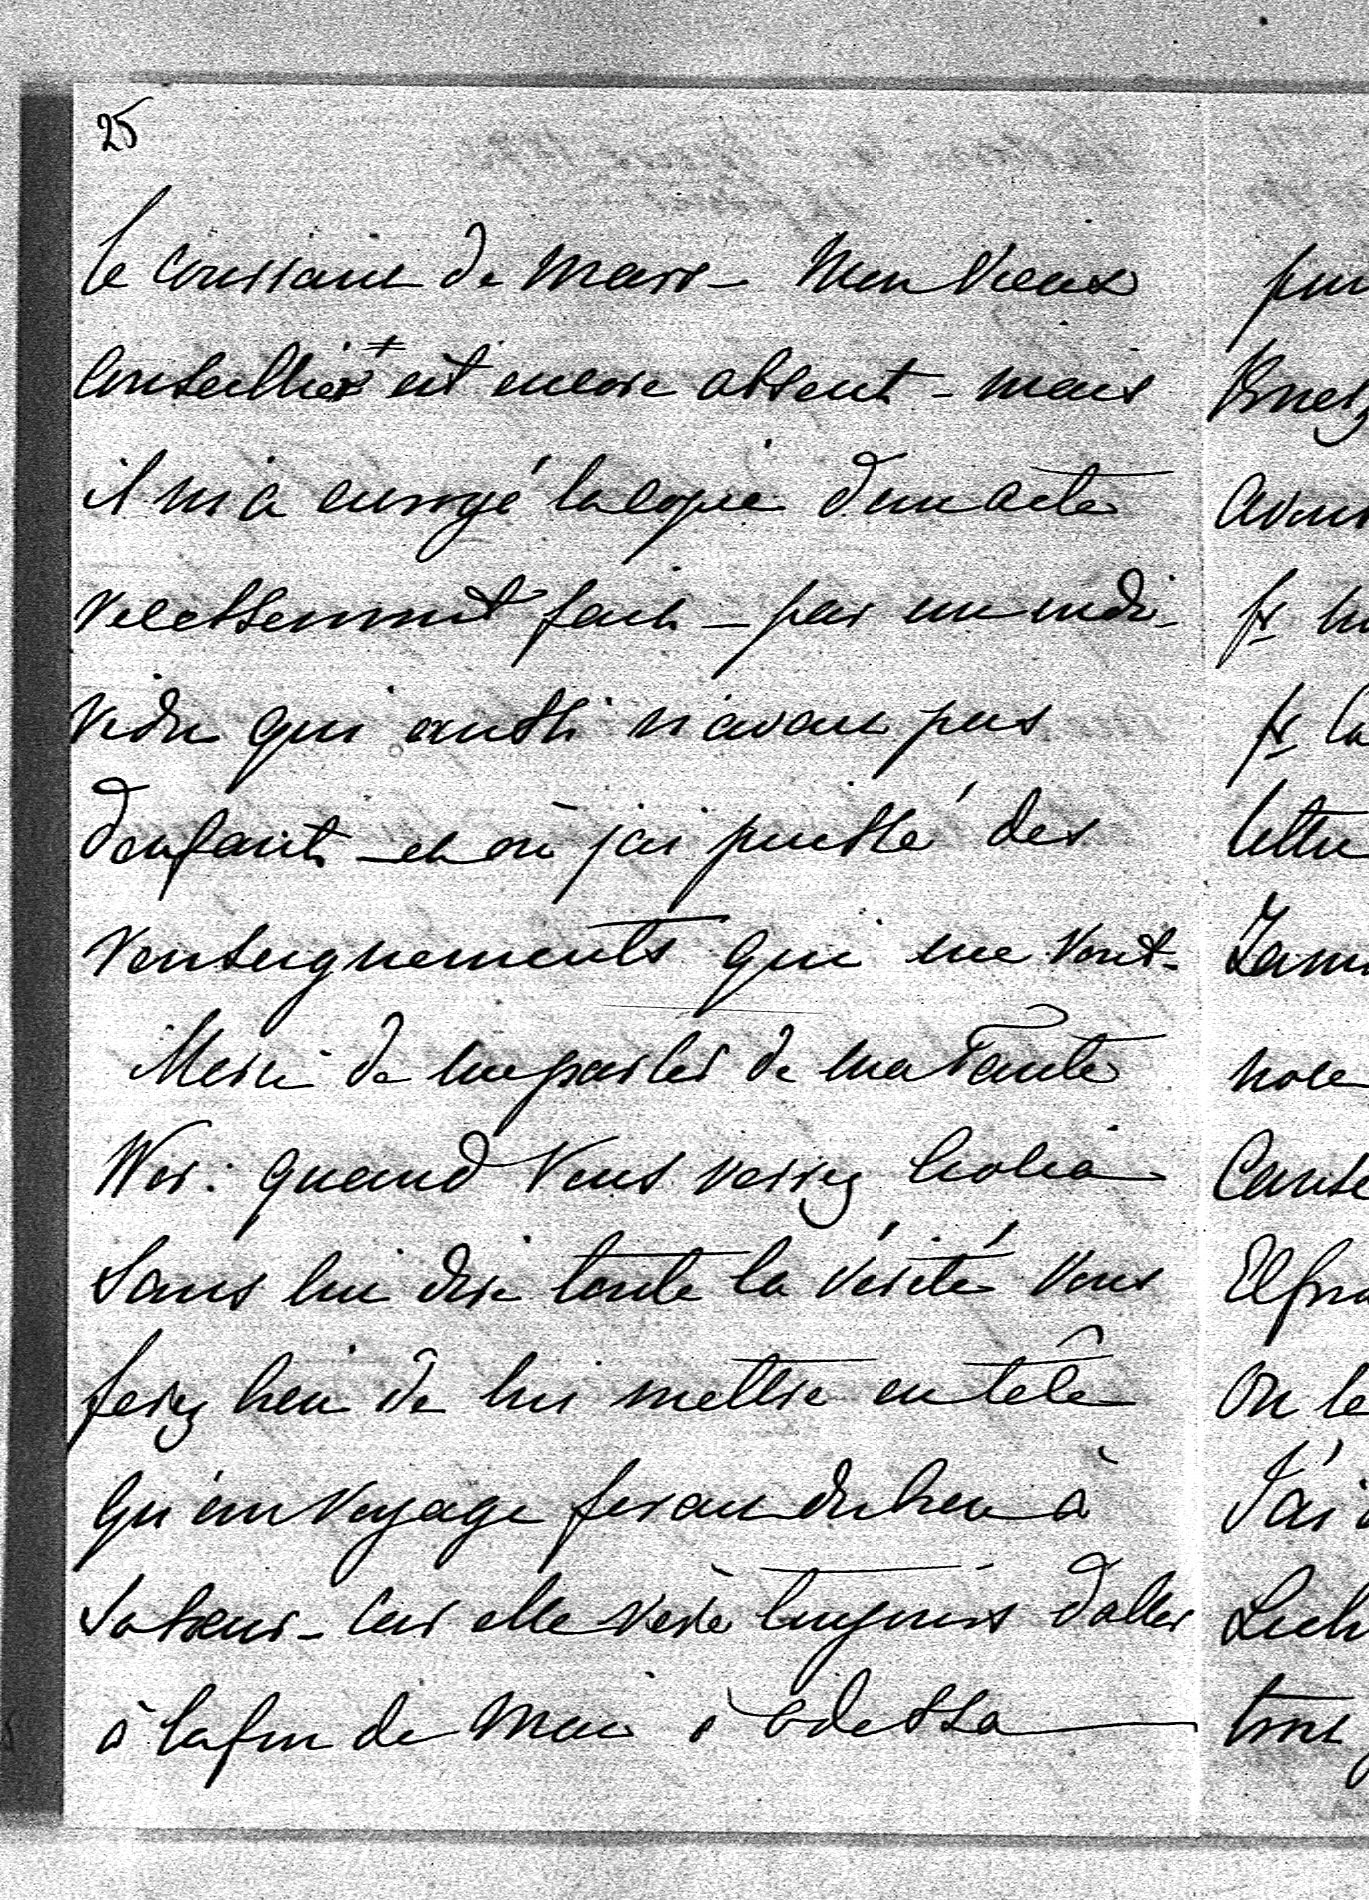 25
le courant de Mars - Mon vieux
Conseillier est encore absent - mais
il m'a envoyé la copie d'un acte
récemment fait - par un indi-
vidu qui aussi n'avait pas
d'enfants - et où j'ai puissé des
renseignements qui me vont -
Merci de me parler de ma Tante
Wor: quand Vous verrez
Sans lui dire toute la vérité Vous
ferez bien de lui mettre en tête
qu'un voyage ferait du bien à
Sa sœur - car elle rêve toujours d'aller
à la fin de Mai à Odessa
pr
pr la
lettre
On le
J'ai